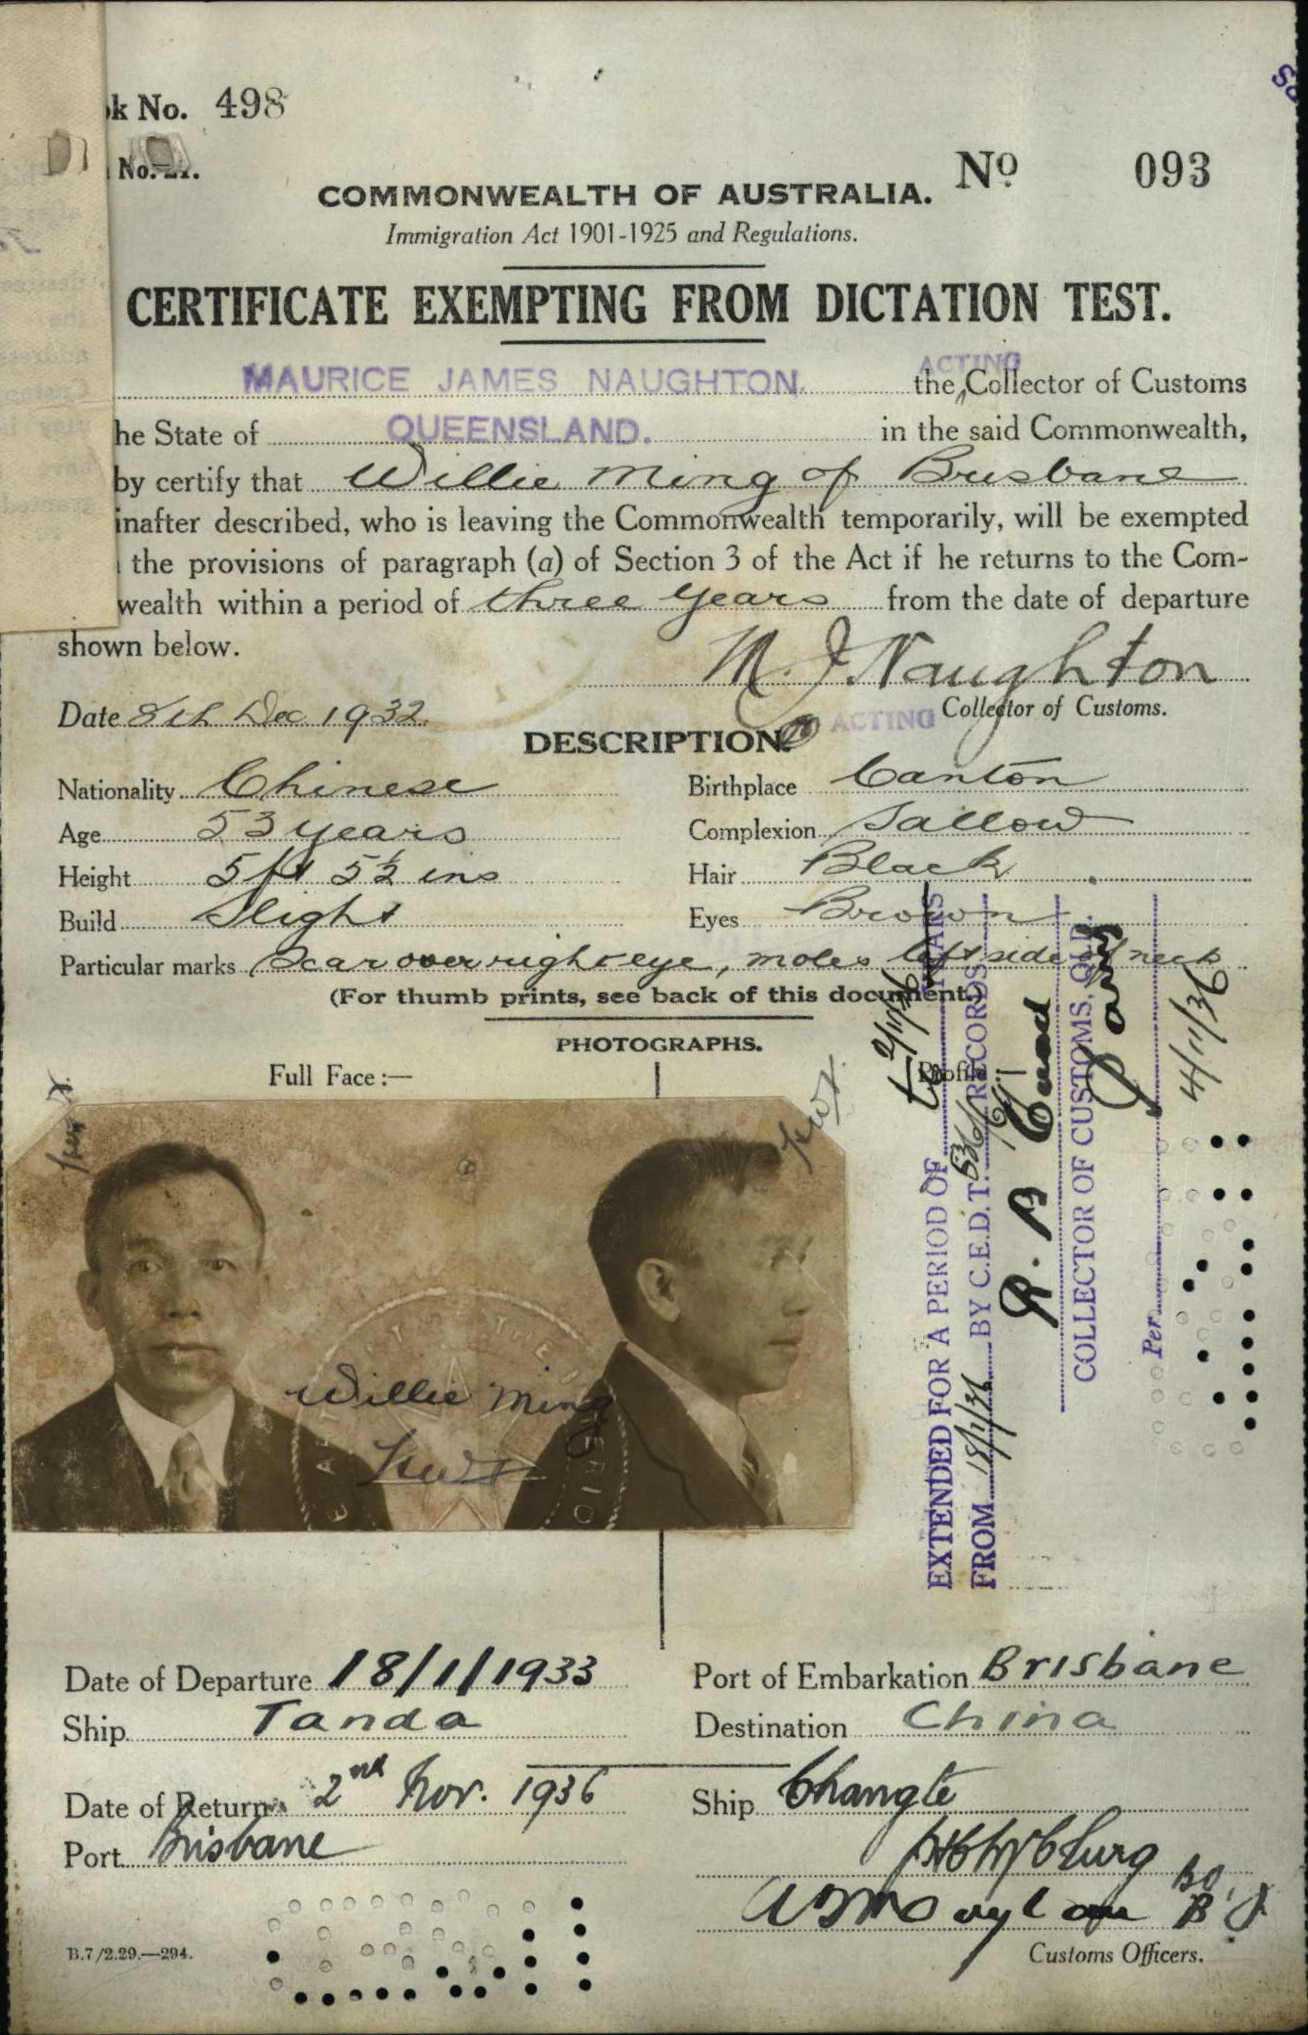 k No. 498
No. 21.
COMMONWEALTH OF AUSTRALIA.
No 093
Immigration Act 1901-1925 and Regulations.
CERTIFICATE EXEMPTING FROM DICTATION TEST.
MAURICE JAMES NAUGHTON the ACTING Collector of Customs
he State of QUEENSLAND. in the said Commonwealth,
by certify that Willie Ming of Brisbane
inafter described, who is leaving the Commonwealth temporarily, will be exempted
the provisions of paragraph (a) of Section 3 of the Act if he returns to the Com-
wealth within a period of three years from the date of departure
shown below.
M. J. Naughton
Date 8th Dec 1932
ACTING Collector of Customs.
DESCRIPTION.
Nationality Chinese
Birthplace Canton
Age 53 years
Complexion Sallow
Height 5 ft 5½ ins
Hair Black
Build Slight
Eyes Brown
Particular marks Scar over right eye, moles left side of neck
(For thumb prints, see back of this document.)
PHOTOGRAPHS.
Full Face:—
Profile:—
Willie Ming
EXTENDED FOR A PERIOD OF YEARS
FROM 18/1/36 BY C.E.D.T. RECORDS
COLLECTOR OF CUSTOMS, QLD.
Per
4/11/36
Date of Departure 18/1/1933
Port of Embarkation Brisbane
Ship Tanda
Destination China
Date of Return 2nd Nov. 1936
Ship Changte
Port Brisbane
Customs Officers.
B.7/2.29.—294.